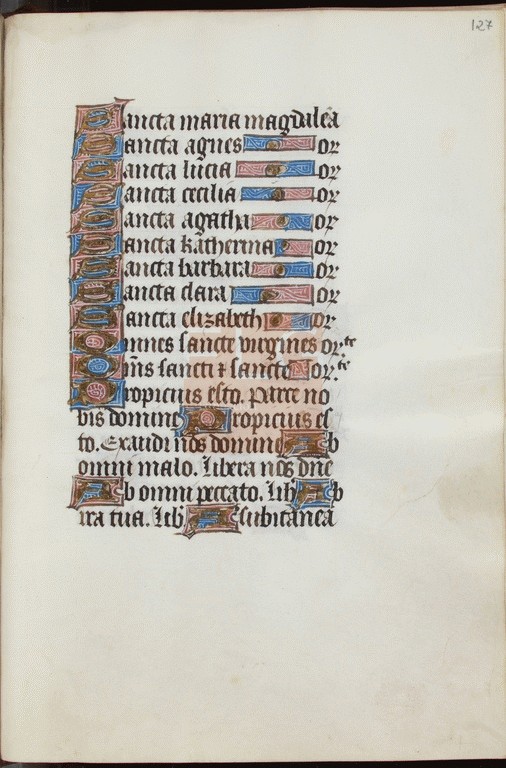 127
Sancta maria magdaleā
Sancta agnes or
Sancta lucia or
Sancta cecilia or
Sancta agatha or
Sancta katherina or
Sancta barbara or
Sancta clara or
Sancta elizabeth or
Omnes sancte virgines or.te
Oṁs sancti ⁊ sancte or.te
Propicius esto. Parce no
bis domine Propicius es
to. Exaudi nos domine Ab
omni malo. Libera nos dñe
Ab omni peccato. Lib Ab
ira tua. Lib A subitanea